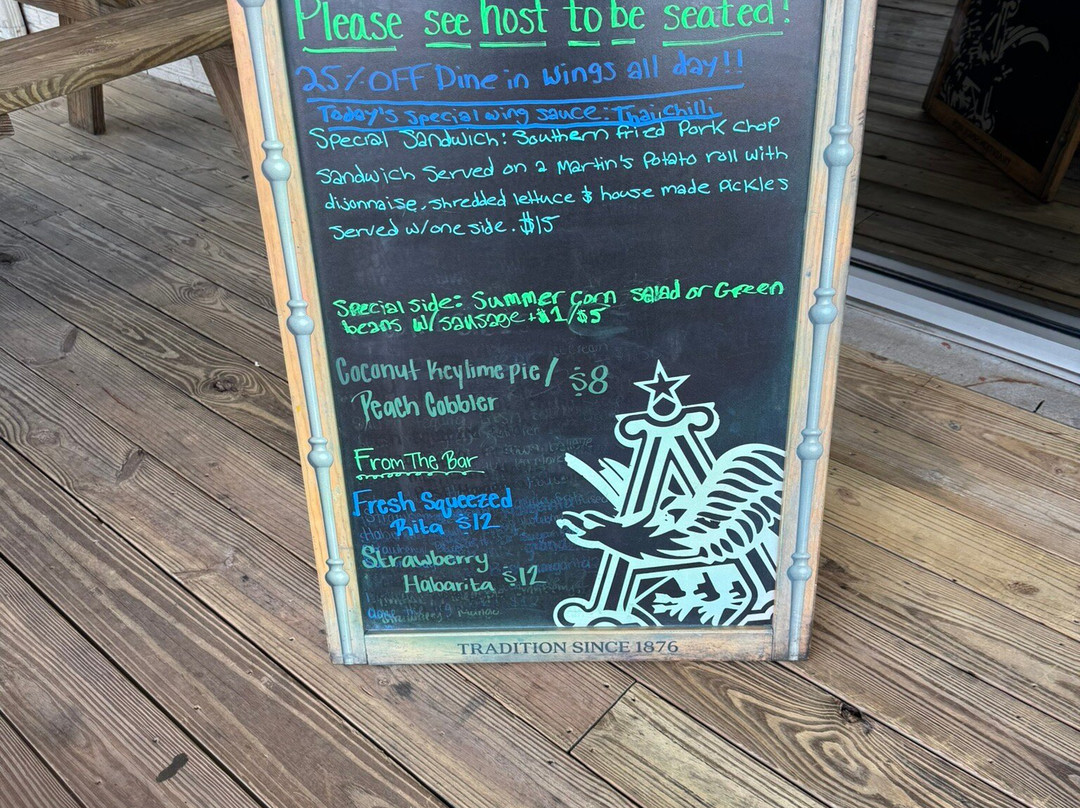 Please see host to be seated!
25% OFF Dine in Wings all day!!
Today's Special wing sauce: Thai Chilli
Special Sandwich: Southern fried Pork chop
Sandwich Served on a Martin's Potato roll with
dijonnaise, shredded lettuce & house made Pickles
Served w/one side. $15
Special side: Summer Corn salad or Green
beans w/ sausage +$1/$5
Coconut Keylime pie / $8
Peach Cobbler
From The Bar
Fresh Squeezed
Rita $12
Strawberry
Habarita $12
TRADITION SINCE 1876